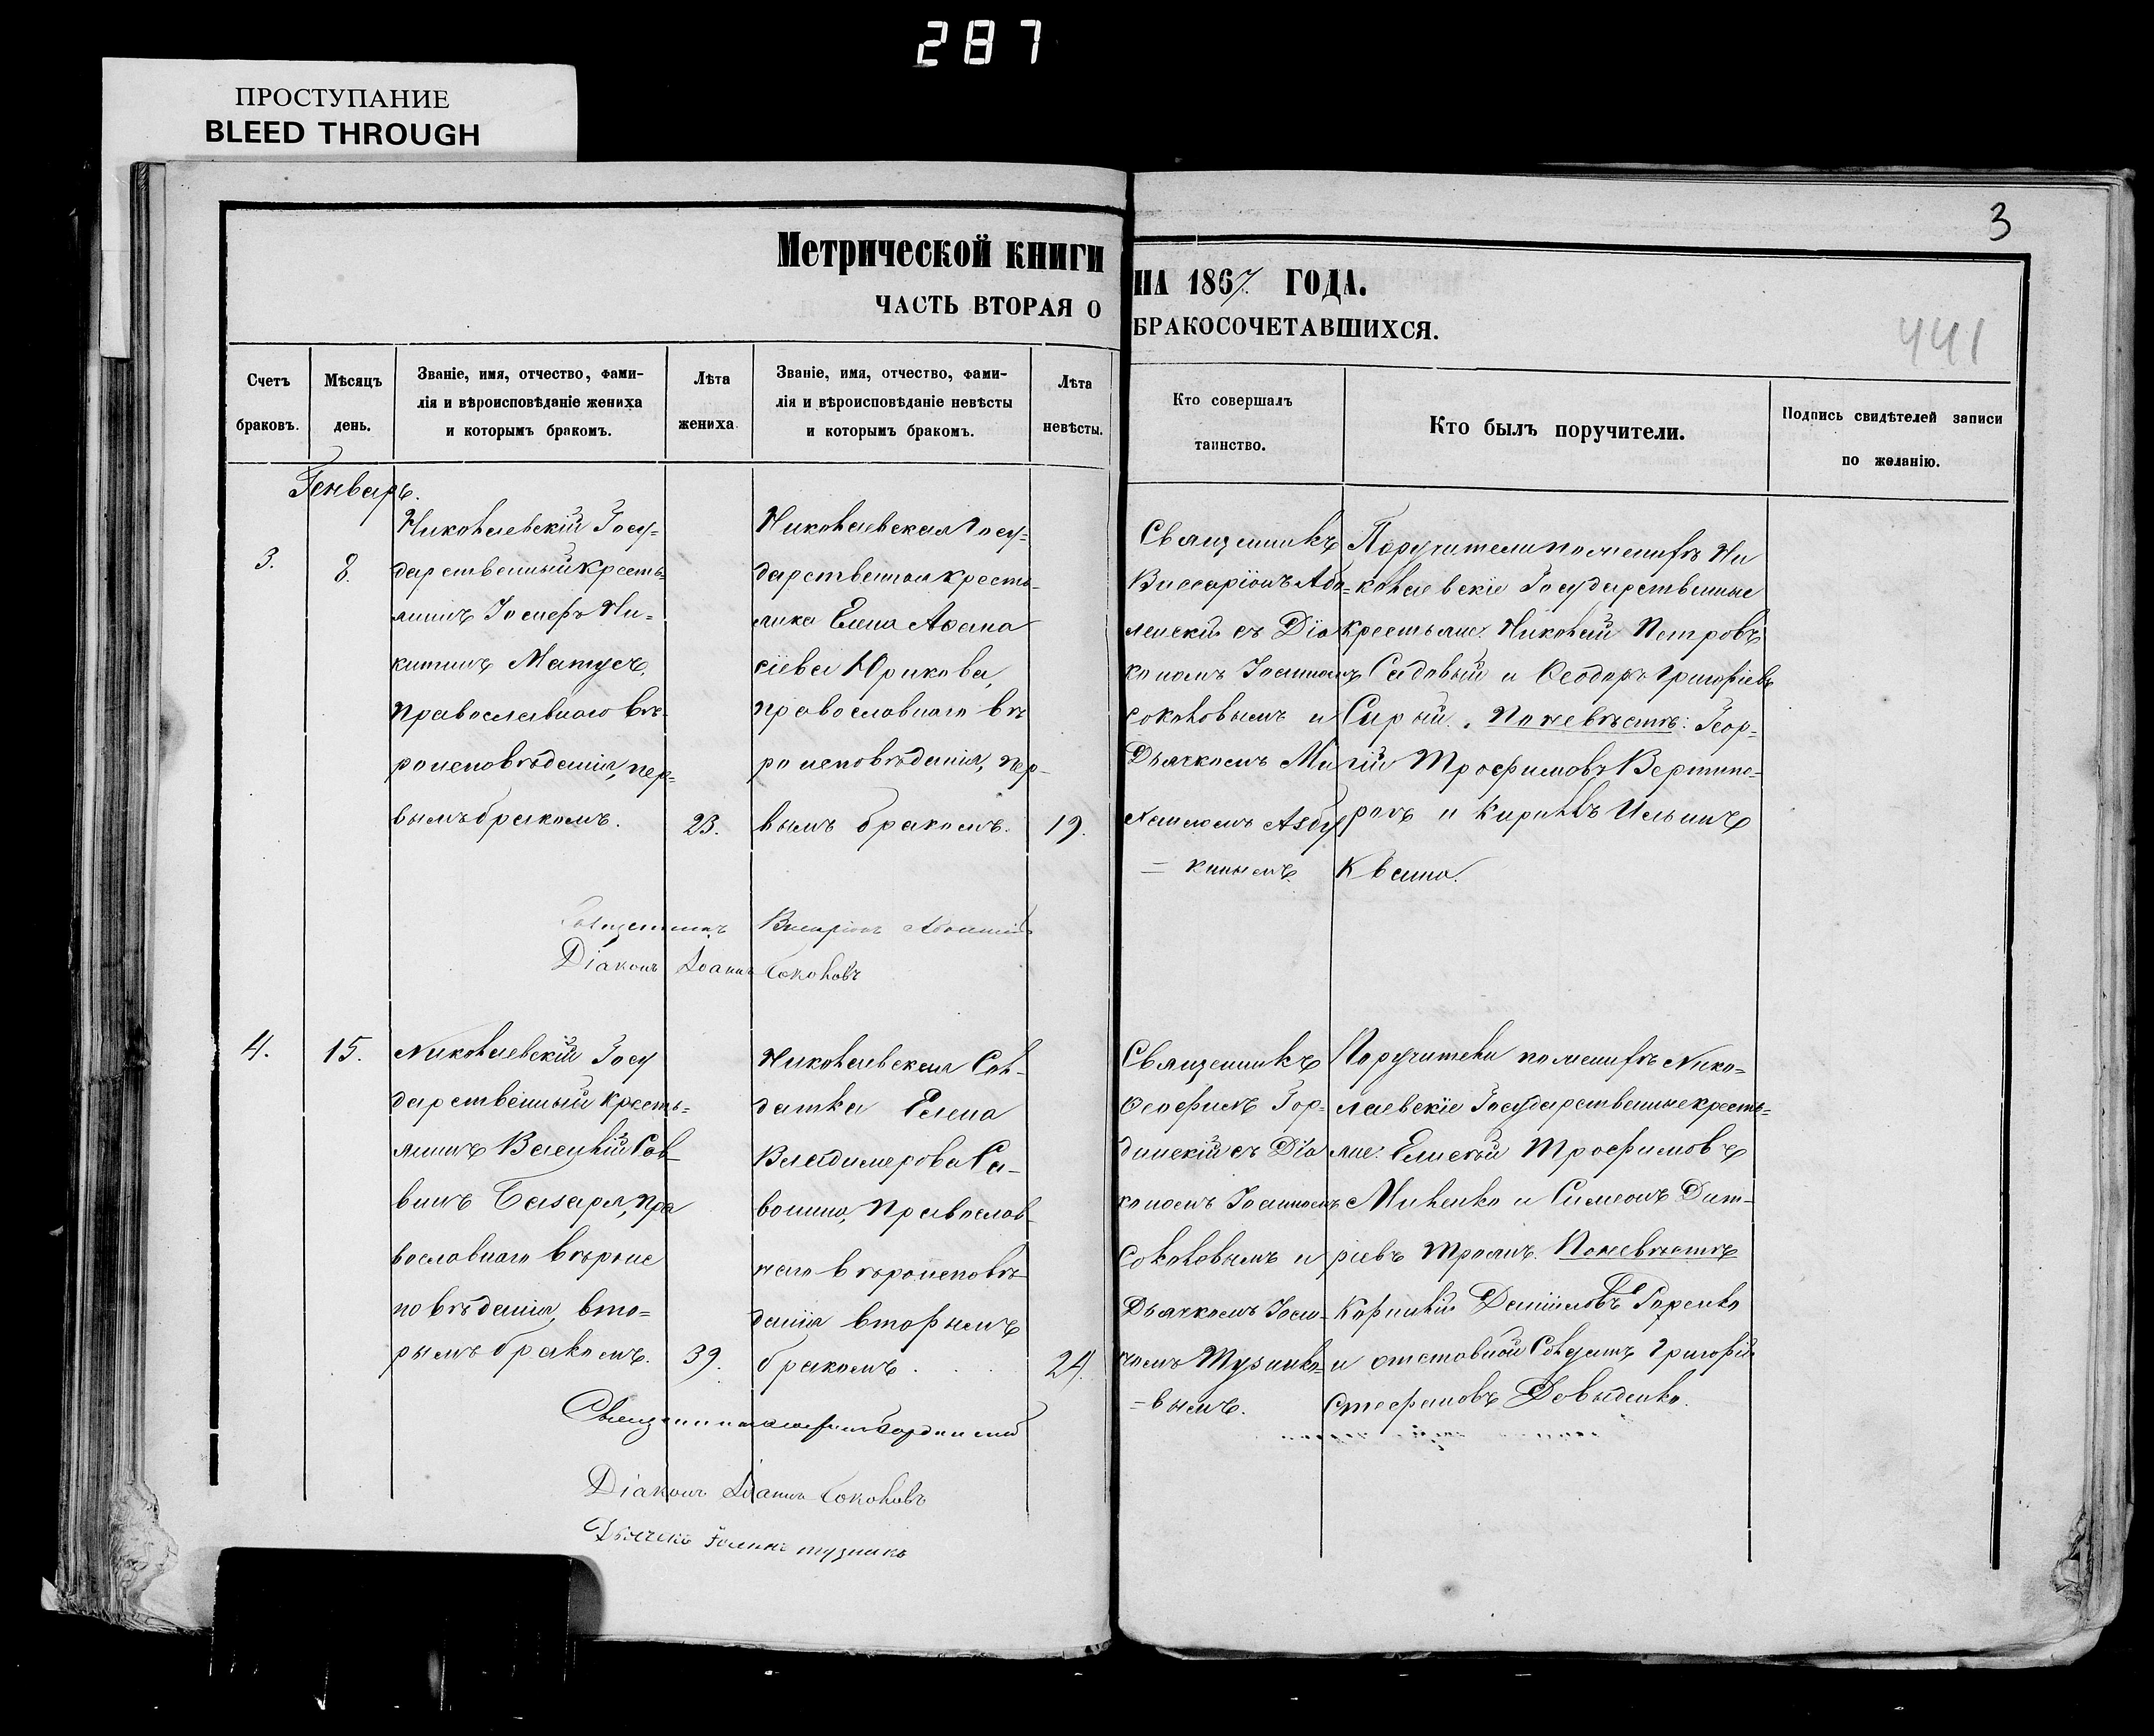 287
ПРОСТУПАНИЕ
BLEED THROUGH
3
Метрической книги НА 1867 ГОДА.
ЧАСТЬ ВТОРАЯ О БРАКОСОЧЕТАВШИХСЯ.
441
Счетъ
браковъ.
Мѣсяцъ
день.
Званіе, имя, отчество, фами-
лія и вѣроисповѣданіе жениха
и которымъ бракомъ.
Лѣта
жениха
Званіе, имя, отчество, фами-
лія и вѣроисповѣданіе невѣсты
и которымъ бракомъ.
Лѣта
невѣсты.
Кто совершалъ
таинство.
Кто былъ поручители.
Подпись свидѣтелей записи
по желанію.
Генварь.
3.
8.
Николаевскій Госу-
дарственный кресть-
янинъ Іосифъ Ни-
китинъ Матусъ,
православнаго вѣ-
роисповѣданія, пер-
вымъ бракомъ.
23.
Николаевская Госу-
дарственная кресть-
янка Елена Афана
сіева Юрикова,
православнаго вѣ
роисповѣданія, пер-
вымъ бракомъ.
19.
Священникъ
Виссаріонъ Або-
ленскій съ Діа
кономъ Іоанномъ
Соколовымъ и
Дьячкомъ Ми
хаиломъ Азбу
= кинымъ.
Поручители по женихѣ Ни
колаевскіе Государственные
крестьяне: Николай Петровъ
Садовый и Ѳеодоръ Григоріевъ
Сирый. По невѣстѣ: Геор-
гій Трофимовъ Вертипо-
рохъ и Кириллъ Ильинъ
Кваша.
Священникъ Висаріонъ
Діаконъ Іоаннъ Соколовъ
4.
15.
Николаевскій Госу
дарственный кресть-
янинъ Василій Сав
винъ Базара, пра
вославнаго вѣроис
повѣданія, вто=
рымъ бракомъ.
39.
Николаевская Сол-
датка Елена
Владимерова Са-
вошина, Православ-
наго вѣроисповѣ-
данія вторымъ
бракомъ.
24.
Священникъ
Ѳеофилъ Гор-
динскій съ Діа
кономъ Іоанномъ
Соколовымъ и
Дьячкомъ Іоан-
номъ Тузинко-
=вымъ.
Поручители по женихѣ Нико=
лаевскіе Государственные кресть=
яне: Елисей Трофимовъ
Михенко и Симеонъ Дит-
ріевъ Троянъ. По невѣстѣ
Корнилій Даниловъ Горенко
и отставной Солдатъ Григорій
Стефановъ Довыденко.
Священникъ Гординскій
Діаконъ Іоаннъ Соколовъ
Дьячекъ Іоаннъ